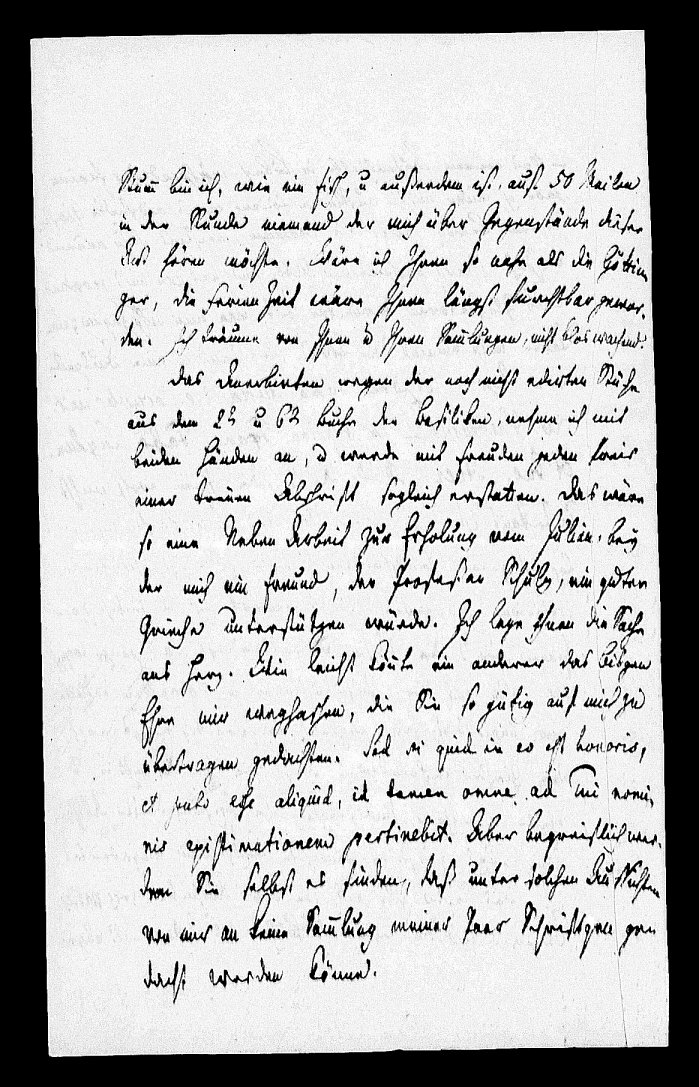 Stum̅ bin ich, wie ein Fisch, u außerdem ist auf 50 Meilen
in der Runde niemand der mich über Gegenstände dieser
Art hören möchte. Wäre ich Ihnen so nahe als die Göttin
ger, die Ferien Zeit wäre Ihnen längst furchtbar gewor-
den. Ich träume von Ihnen u Ihren Sam̅lungen, nicht blos wachend.
Das Anerbieten wegen der noch nicht edirten Stücke
aus dem 2t u 6t Buche der Basiliken, nehme ich mit
beiden Händen an, u werde mit Freuden jeden Preis
einer treuen Abschrift sogleich erstatten. Das wäre
so eine Neben Arbeit zur Erholung vom Julian, bey
der mich ein Freund, der Professor Schulz, ein guter
Grieche unterstützen würde. Ich lege Ihnen die Sache
ans Herz. Wie leicht kön̅te ein anderer das bisgen
Ehre mir weghaschen, die Sie so gütig auf mich zu
übertragen gedachten. Sed si quid in eo est honoris,
et puto esse aliquid, id tamen omne ad Tui nomi-
nis existimationem pertinebit. Aber begreiflich wer-
den Sie selbst es finden, daß unter solchen Aussichten
von mir an keine Sam̅lung meiner paar Schriftgen ge
dacht werden könne.